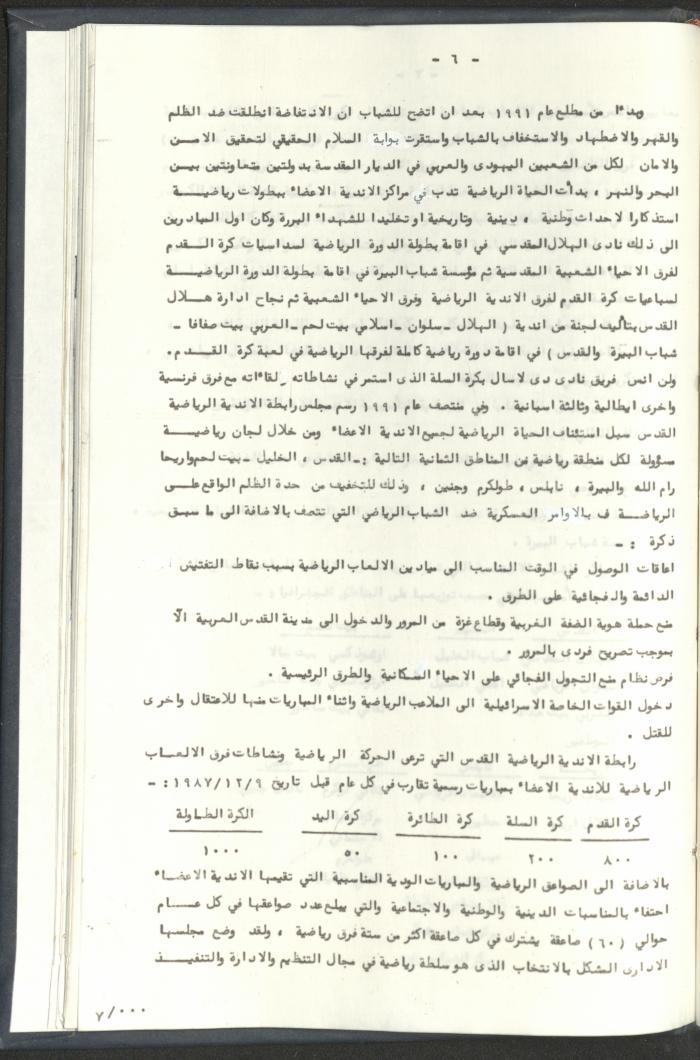 - ٦ -
وبدءا من مطلع عام ١٩٩١ بعد ان اتضح للشباب ان الانتفاضة انطلقت ضد الظلم
والقهر والاضطهاد والاستخفاف بالشباب واستقرت بوابة السلام الحقيقي لتحقيق الامن
والامان لكل من الشعبين اليهودى والعربي في الديار المقدسة بدولتين متعاونتين بين
البحر والنهر ، بدأت الحياة الرياضية تدب في مراكز الاندية الاعضاء ببطولات رياضية
استذكارا لاحداث وطنية ، دينية وتاريخية او تخليدا للشهداء البررة وكان اول المبادرين
الى ذلك نادى الهلال المقدسي في اقامة بطولة الدورة الرياضية لسداسيات كرة القدم
لفرق الاحياء الشعبية المقدسية ثم مؤسسة شباب البيرة في اقامة بطولة الدورة الرياضية
لسباعيات كرة القدم لفرق الاندية الرياضية وفرق الاحياء الشعبية ثم نجاح ادارة هلال
القدس بتأليف لجنة من اندية ( الهلال - سلوان - اسلامي بيت لحم - العربي بيت صفافا -
شباب البيرة والقدس ) في اقامة دورة رياضية كاملة لفرقها الرياضية في لعبة كرة القدم .
ولن انس فريق نادى دى لاسال بكرة السلة الذى استمر في نشاطاته لقاءاته مع فرق فرنسية
واخرى ايطالية وثالثة اسبانية . وفي منتصف عام ١٩٩١ رسم مجلس رابطة الاندية الرياضية
القدس سبل استئناف الحياة الرياضية لجميع الاندية الاعضاء ومن خلال لجان رياضية
مسؤولة لكل منطقة رياضية من المناطق الثمانية التالية :- القدس ، الخليل - بيت لحم واريحا
رام الله والبيرة ، نابلس ، طولكرم وجنين ، وذلك للتخفيف من حدة الظلم الواقع على
الرياضة ف بالاوامر العسكرية ضد الشباب الرياضي التي تتصف بالاضافة الى ما سبق
ذكرة :-
اعاقات الوصول في الوقت المناسب الى ميادين الالعاب الرياضية بسبب نقاط التفتيش
الدائمة والفجائية على الطرق .
منع حملة هوية الضفة الغربية وقطاع غزة من المرور والدخول الى مدينة القدس العربية الآ
بموجب تصريح فردى بالمرور .
فرض نظام منع التجول الفجائي على الاحياء السكانية والطرق الرئيسية .
دخول القوات الخاصة الاسرائيلية الى الملاعب الرياضية واثناء المباريات منها للاعتقال واخرى
للقتل .
رابطة الاندية الرياضية القدس التي ترعى الحركة الرياضية ونشاطات فرق الالعاب
الرياضية للاندية الاعضاء بمباريات رسمية تقارب في كل عام قبل تاريخ ١٩٨٧/١٢/٩ :-
كرة القدم كرة السلة كرة الطائرة كرة اليد الكرة الطاولة
٨٠٠ ٢٠٠ ١٠٠ ٥٠ ١٠٠٠
بالاضافة الى الصواعق الرياضية والمباريات الودية المناسبية التي تقيمها الاندية الاعضاء
احتفاء بالمناسبات الدينية والوطنية والاجتماعية والتي يبلع عدد صواعقها في كل عام
حوالي (٦٠) صاعقة يشترك في كل صاعقة اكثر من ستة فرق رياضية ، ولقد وضع مجلسها
الادارى المشكل بالانتخاب الذى هو سلطة رياضية في مجال التنظيم والادارة والتنفيذ
٧/٠٠٠